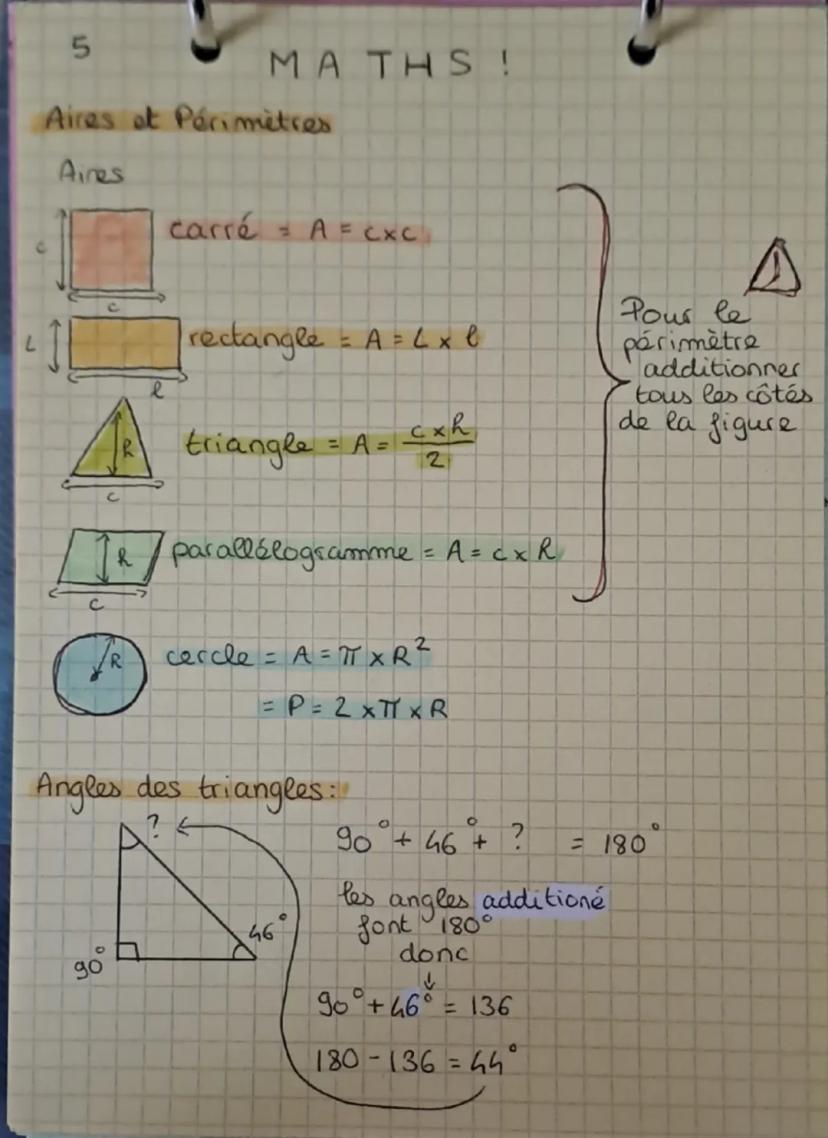 5
MATHS !
Aires et Périmètres
Aires
c
carré = A = c×c
c
L
rectangle = A = L × l
l
h
triangle = A = c×h/2
c
h
parallélogramme = A = c × h
c
Pour le
périmètre
additionner
tous les côtés
de la figure
R
cercle = A = π × R²
= P = 2 × π × R
Angles des triangles :
?
90° + 46° + ? = 180°
les angles additioné
font 180°
donc
46°
90°
90° + 46° = 136
180 - 136 = 44°